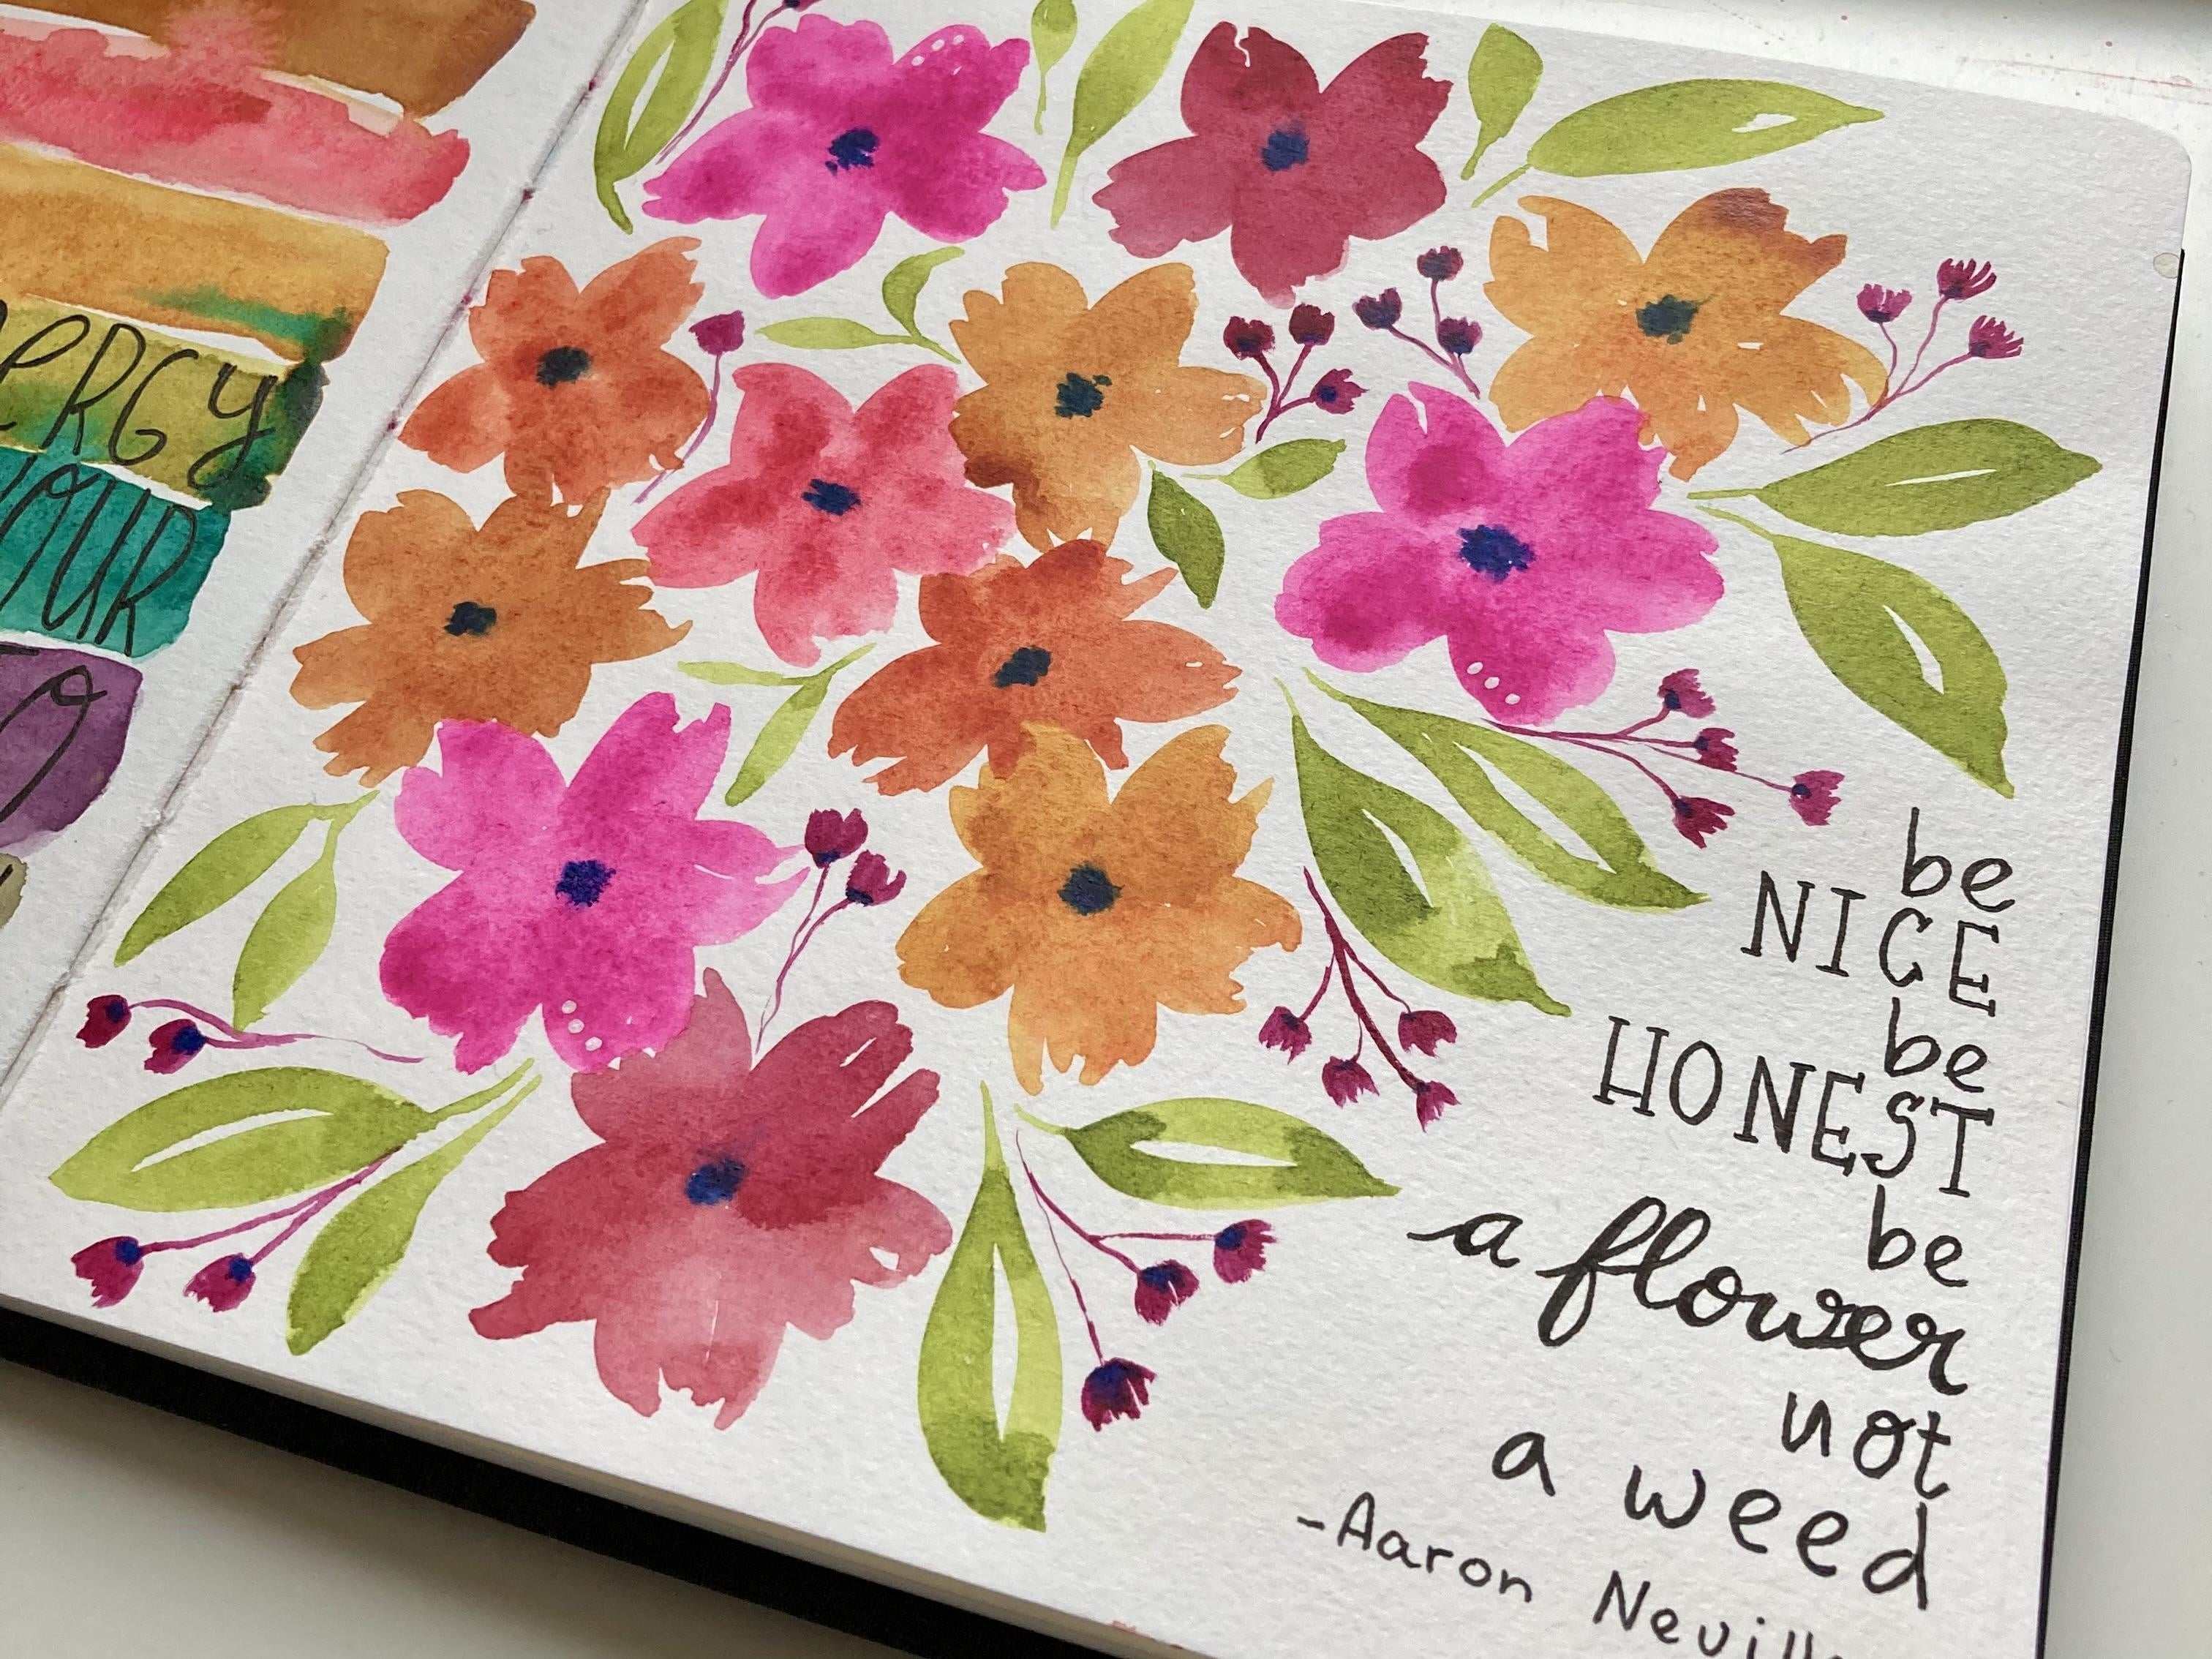 YOUR
be
NICE
be
HONEST
be
a flower
not
a weed
-Aaron